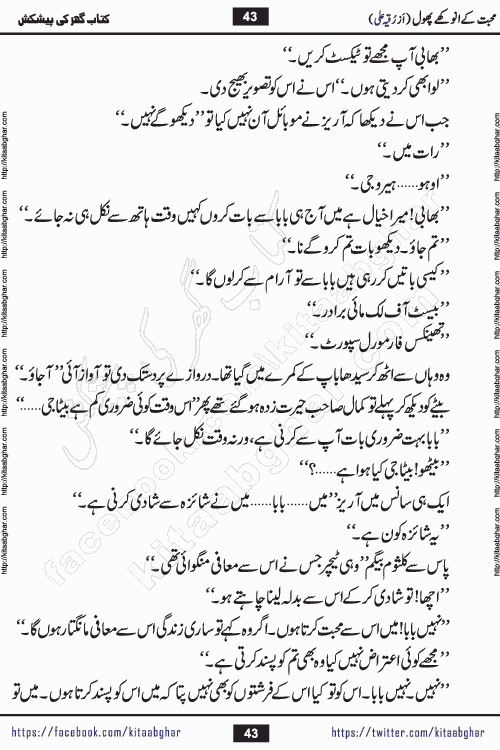 محبت کے انوکھے پھول (از رُقیہ علی) 43 کتاب گھر کی پیشکش
’’بھابی آپ مجھے تو ٹیکسٹ کریں۔‘‘
’’لو ابھی کر دیتی ہوں۔‘‘ اس نے اس کو تصویر بھیج دی۔
جب اس نے دیکھا کہ آریز نے موبائل آن نہیں کیا تو ’’دیکھو گے نہیں۔‘‘
’’رات میں۔‘‘
’’اوہو...... ہیرو جی۔‘‘
’’بھابی! میرا خیال ہے میں آج ہی بابا سے بات کروں کہیں وقت ہاتھ سے نکل ہی نہ جائے۔‘‘
’’تم جاؤ۔ دیکھو بات تم کرو گے نا۔‘‘
’’کیسی باتیں کر رہی ہیں بابا سے تو آرام سے کر لوں گا۔‘‘
’’بیسٹ آف لک مائی برادر۔‘‘
’’تھینکس فار مورل سپورٹ۔‘‘
وہ وہاں سے اٹھ کر سیدھا باپ کے کمرے میں گیا تھا۔ دروازے پر دستک دی تو آواز آئی ’’آ جاؤ۔‘‘
بیٹے کو دیکھ کر پہلے تو کمال صاحب حیرت زدہ ہو گئے تھے پھر ’’اس وقت کوئی ضروری کم ہے بیٹا جی......‘‘
’’بابا بہت ضروری بات آپ سے کرنی ہے، ورنہ وقت نکل جائے گا۔‘‘
’’بیٹھو! بیٹا جی کیا ہوا ہے......؟‘‘
ایک ہی سانس میں آریز ’’میں...... بابا...... میں نے شائزہ سے شادی کرنی ہے۔‘‘
’’یہ شائزہ کون ہے۔‘‘
پاس سے کلثوم بیگم ’’وہی ٹیچر جس نے اس سے معافی منگوائی تھی۔‘‘
’’اچھا! تو شادی کر کے اس سے بدلہ لینا چاہتے ہو۔‘‘
’’نہیں بابا! میں اس سے محبت کرتا ہوں۔ اگر وہ کہے تو ساری زندگی اس سے معافی مانگتا رہوں گا۔‘‘
’’مجھے کوئی اعتراض نہیں کیا وہ بھی تم کو پسند کرتی ہے۔‘‘
’’نہیں۔ نہیں بابا۔ اس کو تو کیا اس کے فرشتوں کو بھی نہیں پتا کہ میں اس کو پسند کرتا ہوں۔ میں تو
https://facebook.com/kitaabghar 43 https://twitter.com/kitaabghar
http://kitaabghar.com
کتاب گھر کی پیشکش
kitaabghar.com
facebook.com/kitaabghar